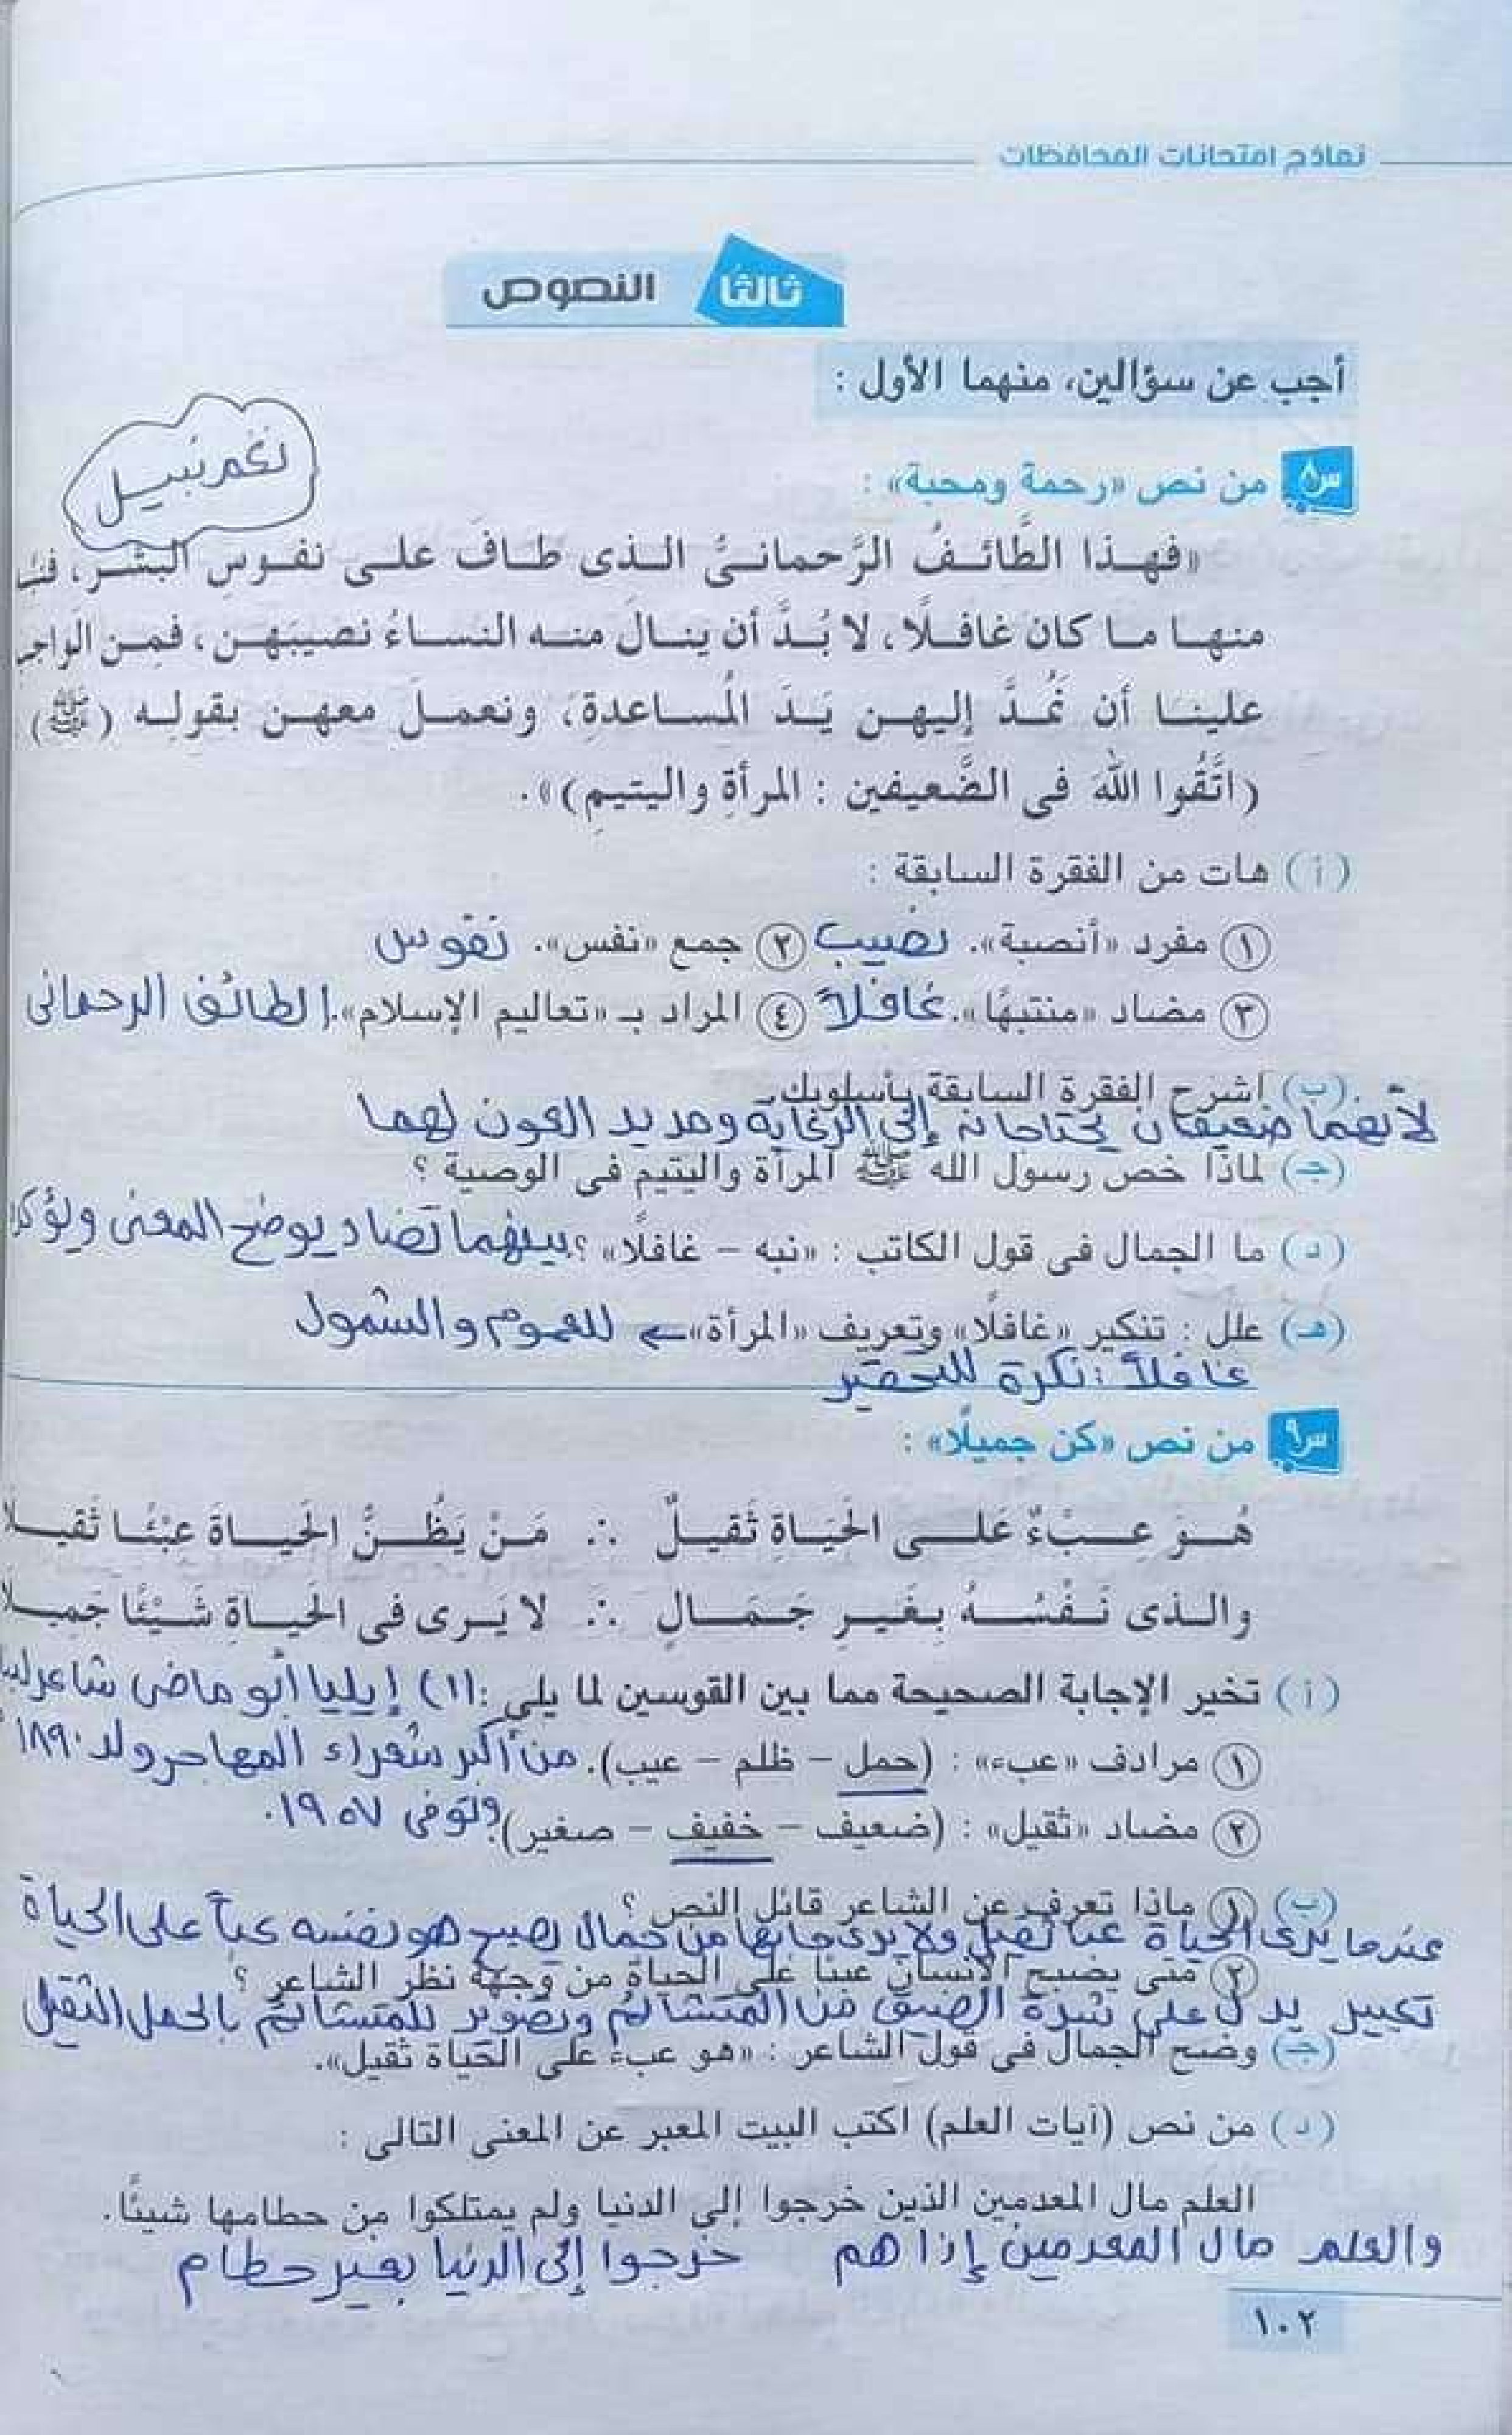 نماذج امتحانات المحافظات
ثالثًا النصوص
أجب عن سؤالين، منهما الأول :
س٨ من نص «رحمة ومحبة» :
نغم نبيل
«فهـذا الطَّائـفُ الرَّحمانـىُّ الـذى طـافَ علـى نفـوسِ البشـر،
منهـا مـا كان غافـلًا، لا بُـدَّ أن ينـالَ منـه النسـاءُ نصيبَهـن، فمِـن
علينـا أن نَمُـدَّ إليهـن يَـدَ المُسـاعدةِ، ونعمـلَ معهـن بقولِـه (ﷺ)
(اتَّقُوا اللهَ فى الضَّعيفين : المرأةِ واليتيمِ)».
(أ) هات من الفقرة السابقة :
① مفرد «أنصبة». نصيب ② جمع «نفس». نفوس
③ مضاد «منتبهًا». غافلاً ④ المراد بـ «تعاليم الإسلام». الطائف الرحمانى
(ب) اشرح الفقرة السابقة بأسلوبك.
لأنهما ضعيفان يحتاجان إلى الرعاية ومد يد العون لهما
(جـ) لماذا خص رسول الله ﷺ المرأة واليتيم فى الوصية ؟
(د) ما الجمال فى قول الكاتب : «نبه – غافلًا» ؟ بينهما تضاد يوضح المعنى
(هـ) علل : تنكير «غافلًا» وتعريف «المرأة» ← للعموم والشمول
غافلاً : نكرة للتحقير
س٩ من نص «كن جميلًا» :
هُـوَ عِـبْءٌ عَلـى الحَيَـاةِ ثَقيـلٌ ∴ مَـنْ يَظُـنُّ الحَيـاةَ عِبْئًـا ثَقيـلا
والـذى نَـفْسُـهُ بِـغَيـرِ جَـمَـالٍ ∴ لا يَـرى فى الحَيـاةِ شَـيْئًا جَميـلا
(أ) تخير الإجابة الصحيحة مما بين القوسين لما يلى : (١) إيليا أبو ماضى شاعر
① مرادف «عبء» : (حمل – ظلم – عيب). من أكبر شعراء المهاجر ولد ١٨٩٠
② مضاد «ثقيل» : (ضعيف – خفيف – صغير). وتوفى ١٩٥٧.
(ب) ① ماذا تعرف عن الشاعر قائل النص ؟
عندما يرى الحياة عبأ ثقيل ولا يرى ما بها من جمال يصبح هو نفسه عبأ على الحياة
② متى يصبح الإنسان عبئًا على الحياة من وجهة نظر الشاعر ؟
تعبير يدل على شدة الضيق من المتشائم وتصوير للمتشائم بالحمل الثقيل
(جـ) وضح الجمال فى قول الشاعر : «هو عبء على الحياة ثقيل».
(د) من نص (آيات العلم) اكتب البيت المعبر عن المعنى التالى :
العلم مال المعدمين الذين خرجوا إلى الدنيا ولم يمتلكوا من حطامها شيئًا.
والعلم مال المعدمين إذا هم خرجوا إلى الدنيا بغير حطام
١٠٢